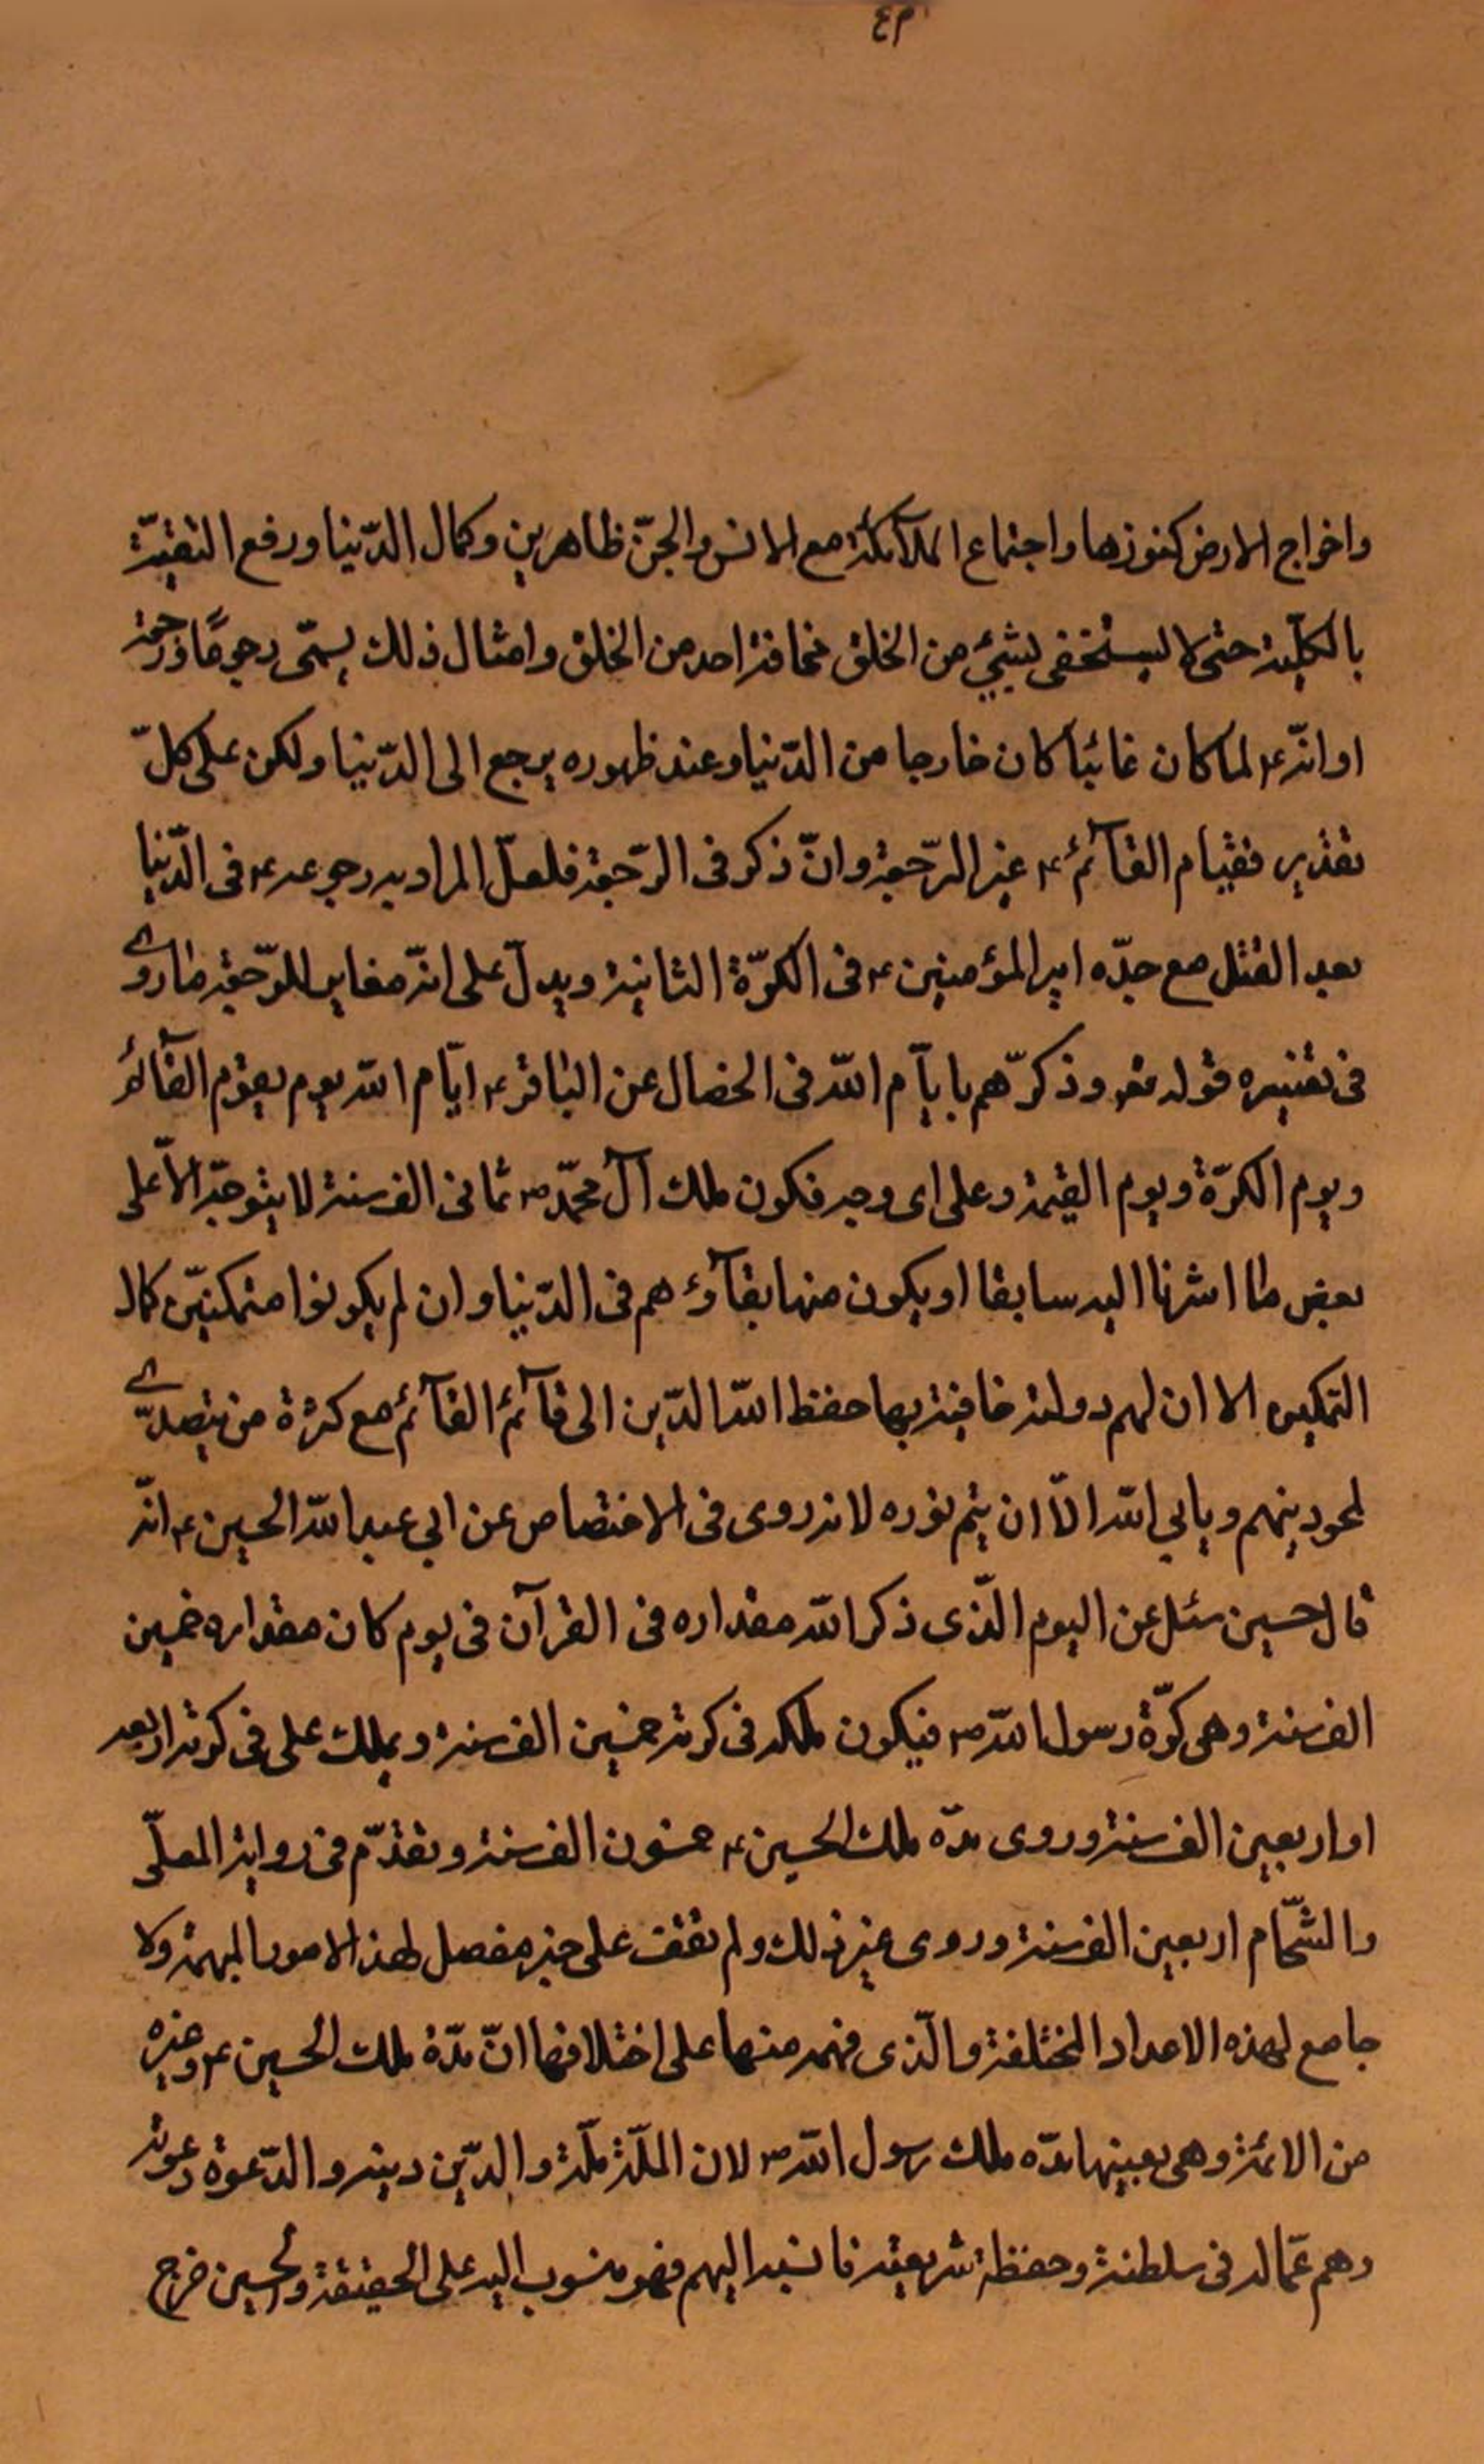 واخراج الارض كنوزها واجتماع الملآئكة مع الانس والجنّ ظاهرين وكمال الدّنيا ورفع التقيّة
بالكلّية حتى لا ليستخفى بشئ من الخلق مخافة احد من الخلق وامثال ذلك يسمّى رجوعًا ورجعة
او انّه ع لما كان غائبًا كان خارجا من الدّنيا وعند ظهوره يرجع الى الدّنيا ولكن على كلّ
تقدير فقيام القآئم ع غير الرّجعة وانّ ذكر فى الرّجعة فلعلّ المراد به رجوعه ع فى الدّنيا
بعد القتل مع جدّه امير المؤمنين ع فى الكرّة الثانية ويدلّ على انّه مغاير للرّجعة ما روى
فى تفسيره قوله تعم وذكرّهم بايآم اللّه فى الخصال عن الباقر ع ايّام اللّه يوم يقوم القآئم
ويوم الكرّة ويوم القيمة وعلى اى وجه فكون ملك آل محمّد ص ثمانى الف سنة لا يتوجّه الاّ على
بعض ما اشرنا اليه سابقا او يكون منها بقآؤهم فى الدّنيا وان لم يكونوا متمكنيّن كمال
التمكين الا ان لهم دولة خافية بها حفظ اللّه الدّين الى قآئم القآئم مع كثرة من يتصدّى
لمحو دينهم ويابي اللّه الاّ ان يتم نوره لانه روى فى الاختصاص عن ابي عبد اللّه الحسين ع انّه
قال حسين سئل عن اليوم الّذى ذكر اللّه مقداره فى القرآن فى يوم كان مقداره خمسين
الف سنة وهى كرّة رسول اللّه ص فيكون ملكه فى كرته خمسين الف سنة ويملك على فى كرته اربعه
او اربعين الف سنة وروى مدّه ملك الحسين ع خمسون الف سنة وتقدّم فى رواية المعلّى
والشّحّام اربعين الف سنة وروى غير ذلك ولم نقف على خبر مفصل لهذ الامور المبهمة ولا
جامع لهذه الاعداد المختلفة والّذى فهمه منها على اختلافها انّ مدّة ملك الحسين ع وغيره
من الائمة وهى بعينها مدّه ملك رسول اللّه ص لان الملّة ملّة والدّين دينه والدّعوة دعوته
وهم عمّاله فى سلطنة وحفظة شريعته فانسب اليهم فهو منسوب اليه على الحقيقة والحسين خرج